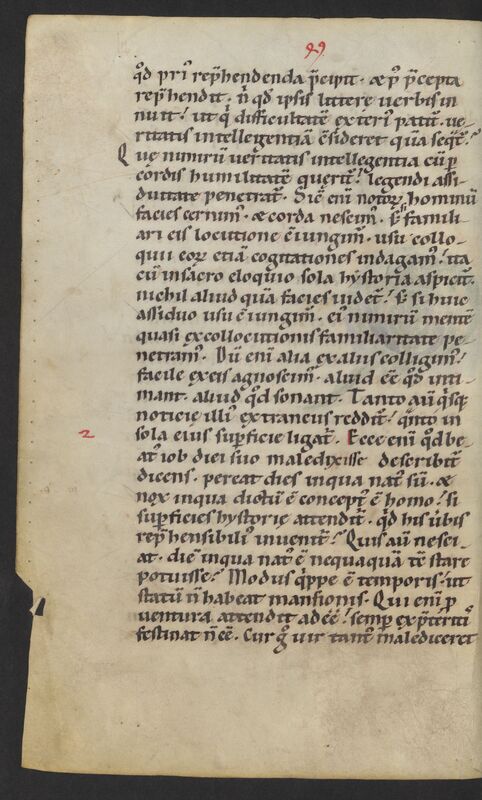 99
qd̄ pri᷒ rep̄hendenda p̄cipit · æ p᷒ p̄cepta
rep̄hendit · n̄ qd̄ ipsis littere uerbis in
nuit! ut q̇ difficultatē exteri᷒ patit᷑ · ue-
ritatis intellegentiā c̄sideret quā seqt᷑!
Quę nimirū ueritatis intellegentia cū p̱
cordis humilitatē querit᷑! legendi assi-
duitate penetrat᷑ · Sic̄ enī notoꝝ hominū
facies cernim᷒ · æ corda nescim᷒ · s; famili-
ari eis locutione c̄iungim᷒ · usu collo-
quii eoꝝ etiā cogitationes indagam᷒! ita
cū in sacro eloquio sola hystoria aspicit᷑ ·
nichil aliud quā facies uidet᷑! s; si huic
assiduo usu c̄iungim᷒ · ei᷒ nimirū mentē
quasi ex collocutionis familiaritate pe-
netram᷒ · Dū enī alia ex aliis colligim᷒!
facile ex eis agnoscim᷒ · aliud ēē qd̄ inti-
mant · aliud qd̄ sonant · Tanto aū q̇sq;
noticie illi᷒ extraneus reddit᷑! q̄nto in
2 sola eius sup̱ficie ligat᷑ · Ecce enī qd̄ be-
at᷒ iob diei suo maledixisse describit᷑
dicens · pereat dies in qua nat᷒ sū · æ
nox in qua dictū ē concept᷒ ē homo! si
sup̱ficies hystorie attendit᷑ · qd̄ his ūbis
rep̄hensibili᷒ inuenit᷑! Quis aū nesci-
at · diē in qua nat᷒ ē nequaquā tc̄ stare
potuisse! Modus q̇ppe ē temporis · ut
statū n̄ habeat mansionis · Qui enī p̱
uentura attendit ad ēē! semp̱ ex p̄terito
festinat n̄ ēē · Cur g̊ uir tant᷒ malediceret